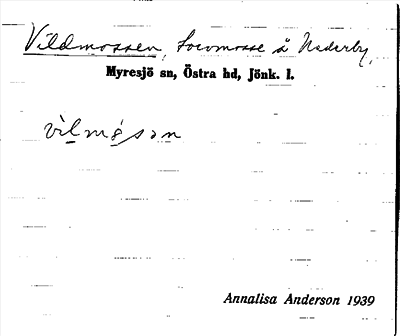 Vildmossen, torvmosse å Nederby,
Myresjö sn, Östra hd, Jönk. l.
vìlmósan
Annalisa Anderson 1939